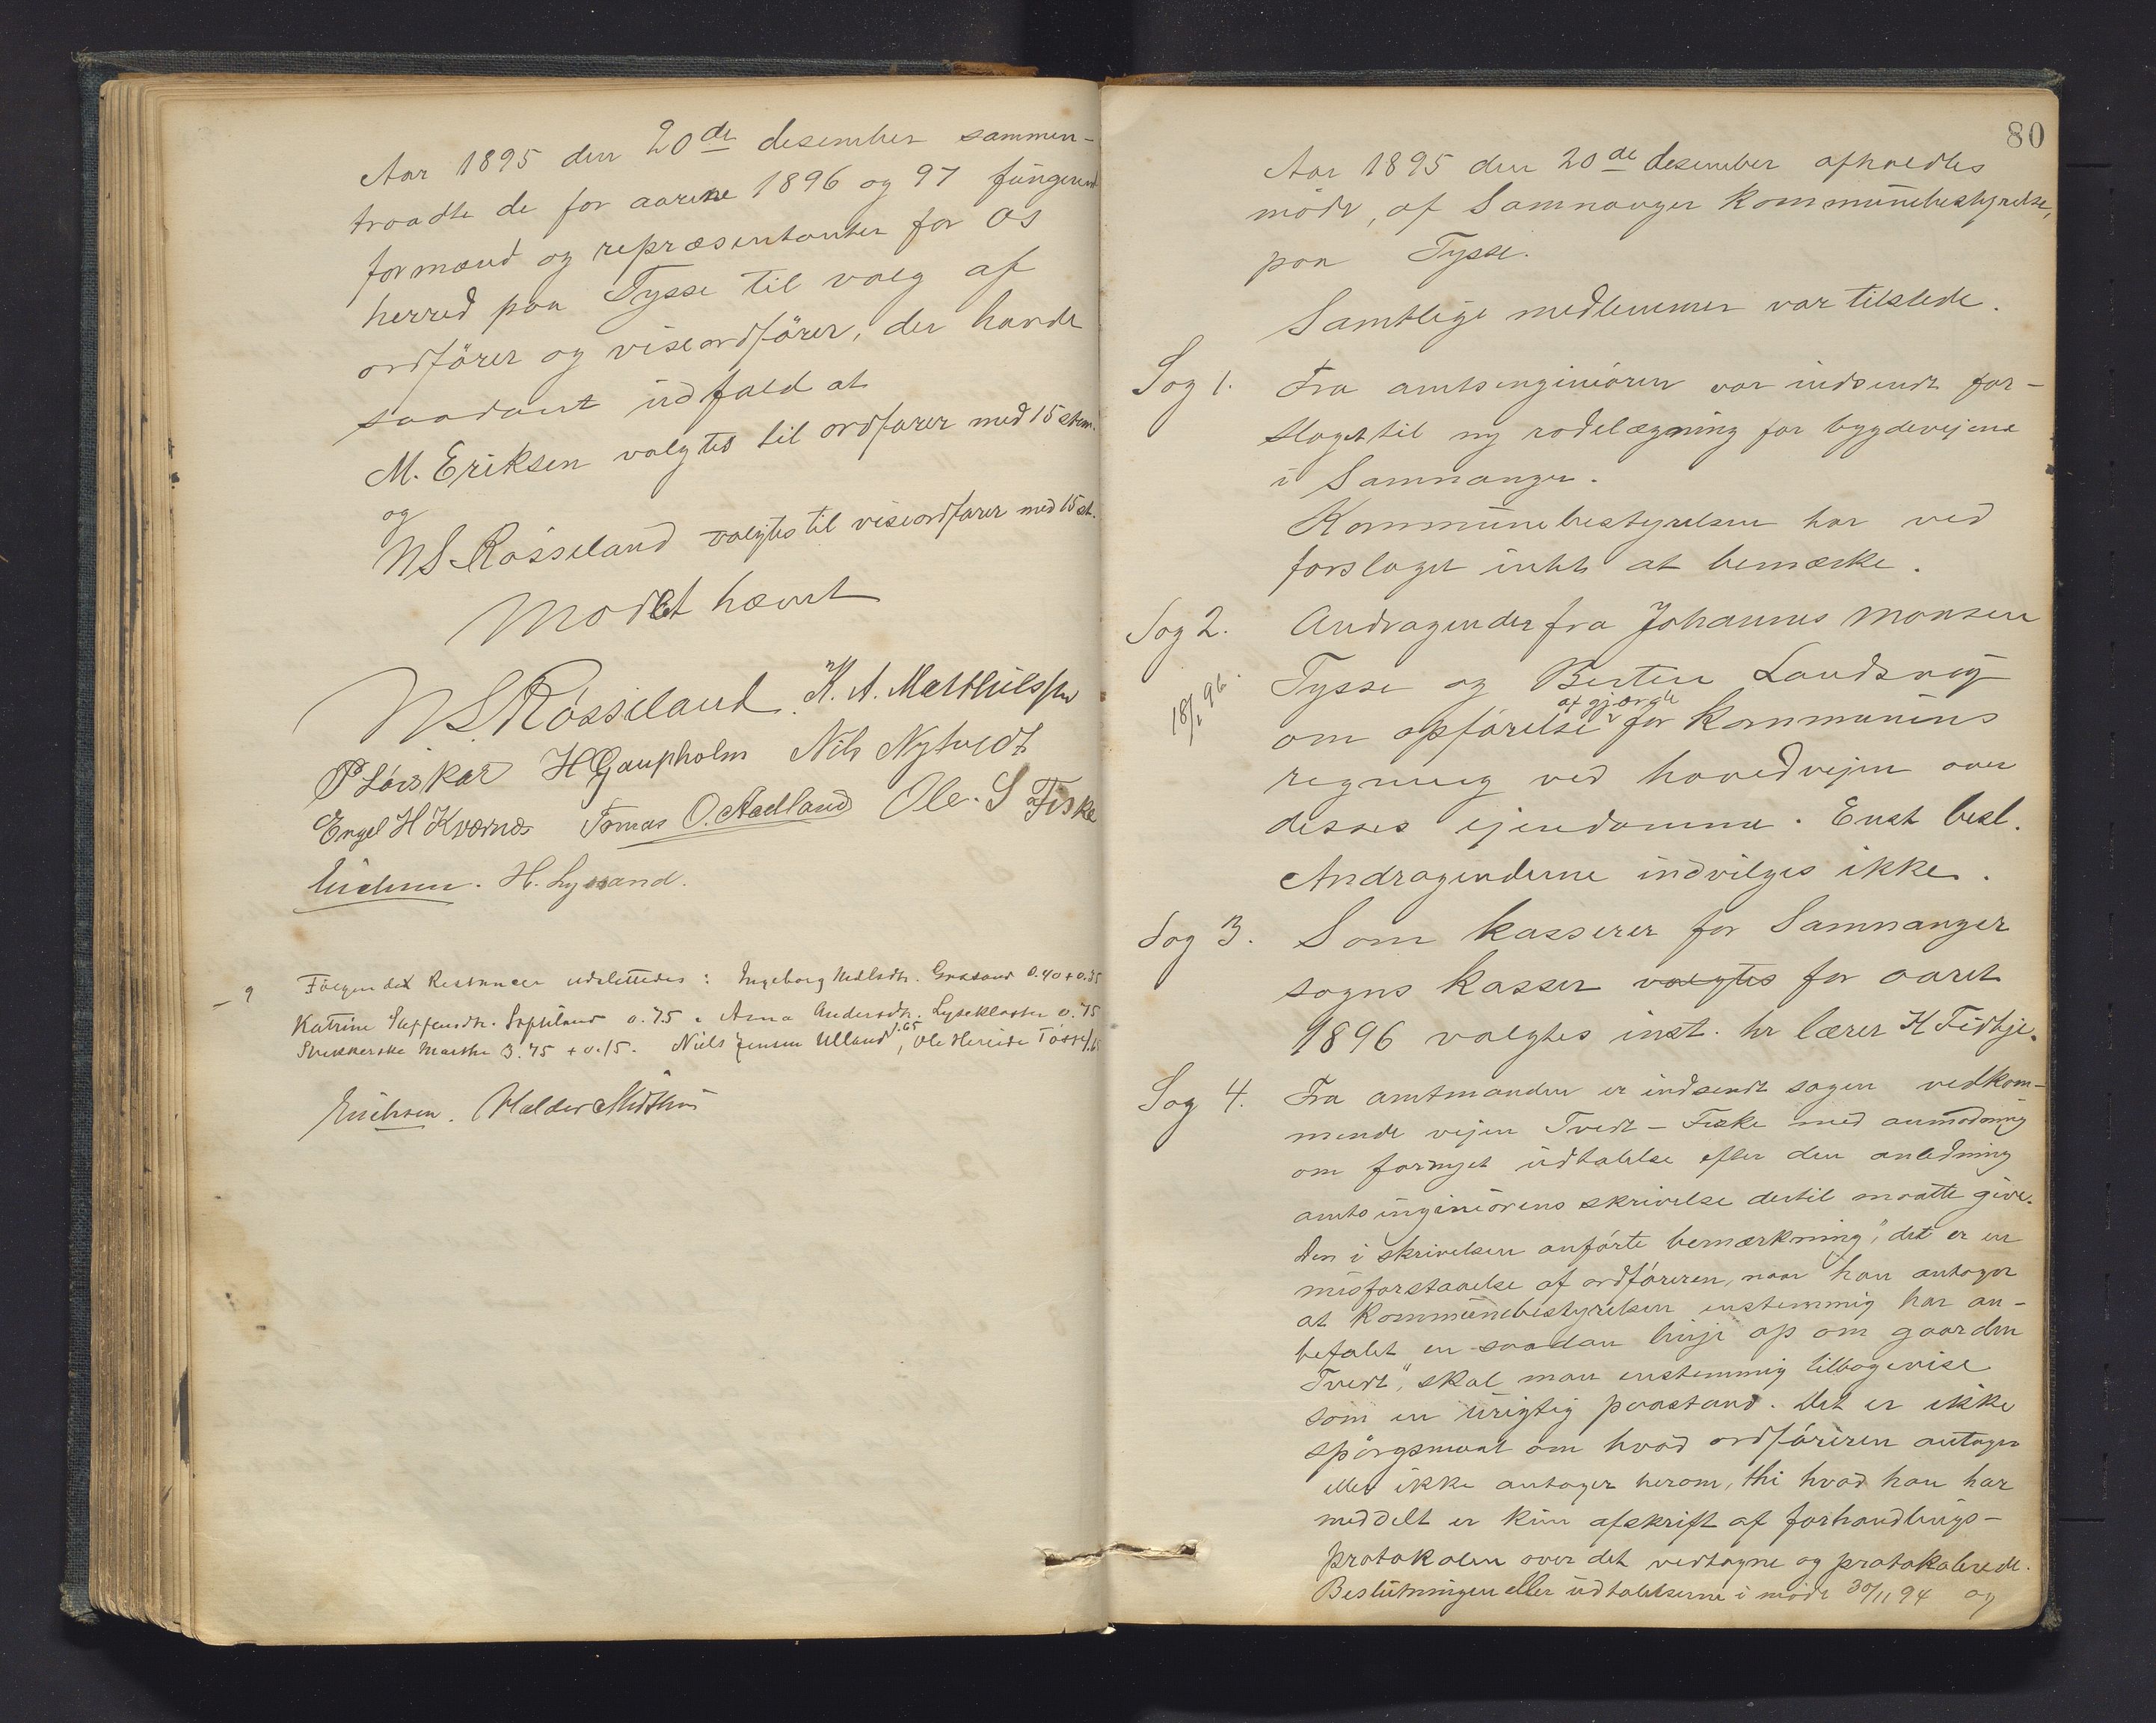 Aar 1895 den 20de desember sammen-
traadte de for aarene 1896 og 97 fungerend
formænd og repræsentanter for Os
herred paa Tysse til valg af
ordförer og viseordförer, der havde
saadant udfald at
M. Eriksen valgtes til ordfører med 15 stem.
og
NS Røsseland valgtes til viseordfører med 15 st.
Mødet hævet
NS Røsseland. K. A. Mathiessen
P Løvskar H Gaupholm Nils Nytvedt
Engel H Kværnes Tomas O. Aadland Ole. S Fiske
Erichsen. H. Lyssand.
- 9 Følgende Restancer udslettedes: Ingeborg Nedlsdtr. 0.40 + 0.35
Katrine Steffensdtr. 0.75. Anna Andersdtr. Lysekloster 0.75
Marthe 3.75 + 0.15. Niels Jensen Ulland 1.65, Ole
Erichsen. Halder Midthus
80
Aar 1895 den 20de desember afholdtes
möde, af Samnanger Kommunebestyrelse,
paa Tysse.
Samtlige medlemmer var tilstede.
Sag 1. Fra amtsingeniören var indsendt for-
slaget til ny rodelægning for bygdeveiene
i Samnanger.
Kommunebestyrelsen har ved
forslaget intet at bemærke.
Sag 2. Andragender fra Johannes Monsen
18/1 96.
Tysse og Berten Landsvig
af gjærde
om opförelse for Kommunens
regning ved hovedvejen over
desses ejendomme. Enst besl.
Andragenderne indvilges ikke.
Sag 3. Som kasserer for Samnanger
sogns kasser valgtes for aaret
1896 valgtes inst. hr lærer K Tidtje.
Sag 4. Fra amtmanden er indsendt sagen vedkom-
mende vejen Tvedt - Fiske med anmodning
om fornyet udtalelse efter den anledning
amtsingeniörens skrivelse dertil maatte give.
Den i skrivelsen anförte bemærkning, "det er en
misforstaaelse af ordföreren, naar han antager
at Kommunebestyrelsen enstemmig har an-
befalet en saadan linje op om gaarden
Tvedt", skal man enstemmig tilbagevise
som en urigtig paastand. Det er ikke
spörgsmaal om hvad ordföreren antager
eller ikke antager herom, thi hvad han har
meddelt er kun afskrift af forhandlings-
protokolen over det vedtagne og protokolerede.
Beslutningen eller udtalelserne i möde 30/11 94 og